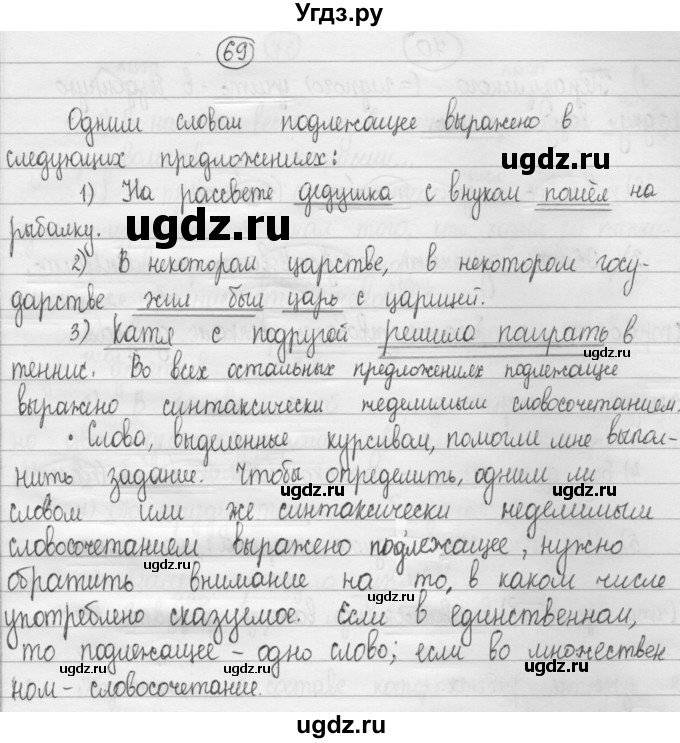 Угдз.ру
69
Одним словом подлежащее выражено в
следующих предложениях:
1) На рассвете дедушка с внуком пошёл на
рыбалку.
2) В некотором царстве, в некотором госу-
дарстве жил был царь с царицей.
3) Катя с подругой решила поиграть в
теннис. Во всех остальных предложениях подлежащее
выражено синтаксически неделимым словосочетанием.
• Слова, выделенные курсивом, помогли мне выпол-
нить задание. Чтобы определить, одним ли
словом или же синтаксически неделимым
словосочетанием выражено подлежащее, нужно
обратить внимание на то, в каком числе
употреблено сказуемое. Если в единственном,
то подлежащее – одно слово; если во множествен
ном – словосочетание.
ugdz.ru
ugdz.ru
ugdz.ru
ugdz.ru
ugdz.ru
ugdz.ru
ugdz.ru
ugdz.ru
ugdz.ru
ugdz.ru
ugdz.ru
ugdz.ru